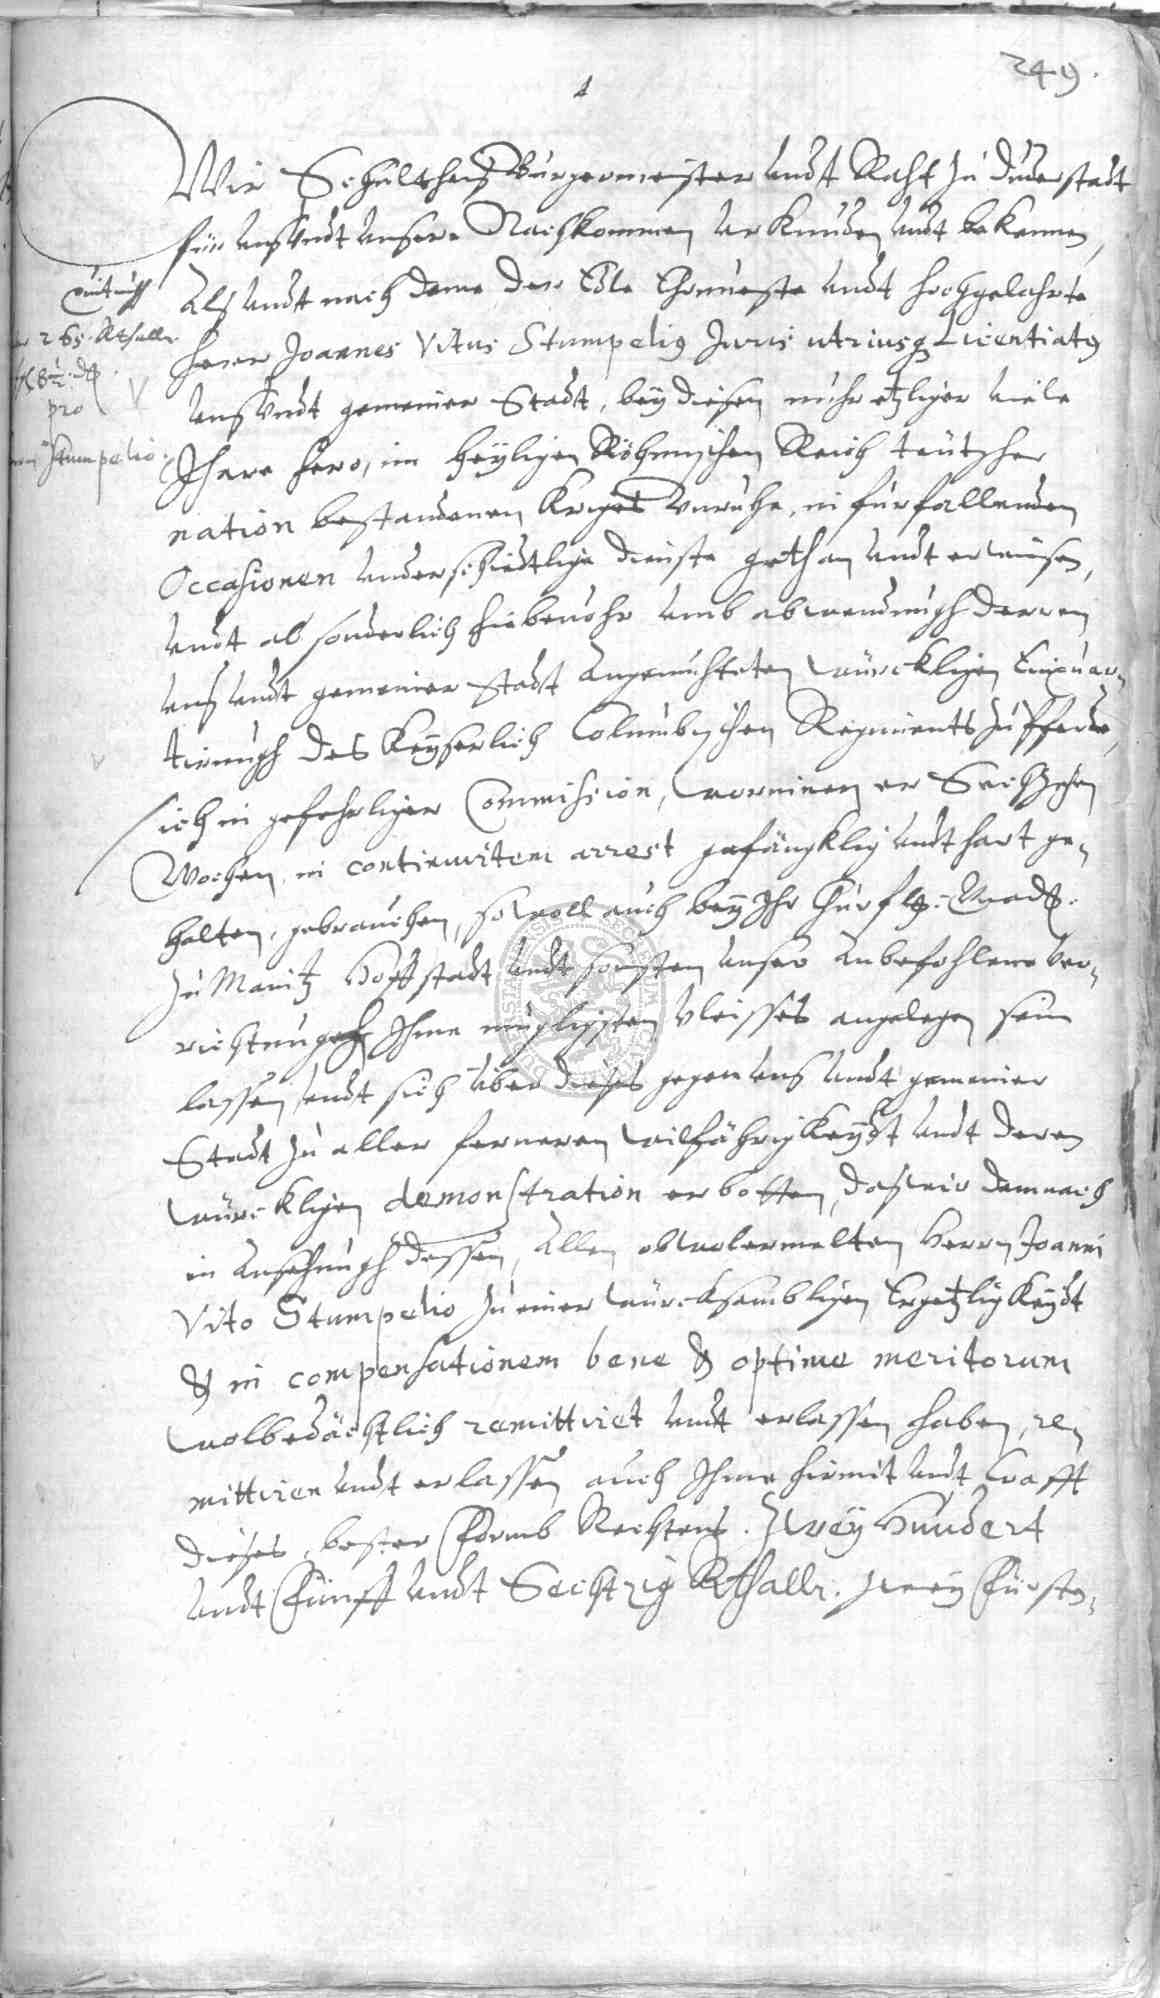 249.
1
Wir Schultheiß Burgermeister undt Raht zu Duderstadt
für unß undt unsere Nachkommen urkunden undt bekennen,
Alß undt nach deme der Edle Ehrnueste undt hochgelahrte
Quitung
265. Rthallr.
8½. d
pro
Stumpelio
Herr Joannes Vitus Stumpelig Juris utriusq Licentiatg
unß undt gemeiner Stadt, bey diesen nuhr etzliger viele
Jhare hero, im Heyligen Röhmischen Reich teutzscher
nation bestandenen Kriges Unruhe, in fürfallenden
Occasionen underschiedtlige dienste gethan undt erwiesen,
undt absonderlich hiebeuohr umb abwendungh derren
unß undt gemeiner Stadt angemuhteten würckligen Einquar-
tirungh des Keyserlich Columbischen Regiments zu Pferde,
sich in gefehrliger Commission, worinnen er Sechzehen
Wochen in continuitem arrest gefängklig undt hart ge-
halten, gebrauchen, so woll auch bey Ihr Churfl. Gnad.
zu Maintz Hoffstadt undt sonsten unser anbefohlene Ver-
richtungen Ihme mügligsten Vleisses angelegen sein
lassen, undt sich über dieses gegen unß undt gemeiner
Stadt zu aller ferneren wilfährigkeydt undt deren
würckligen demonstration erbotten, daß wir demnach
in ansehungh dessen, allen obwolermelten Herrn Joanni
Vito Stumpelio zu einer würcksambligen Ergetzligkeydt
& in compensationem bene & optime meritorum
wolbedächtlich remittiret undt erlassen haben, re-
mittiren undt erlassen auch Ihme hirmit undt Crafft
dieses, bester Formb Rechtens. Zwey Hundert
undt Fünff undt Sechtzig Rthallr. zwey Fürsten-